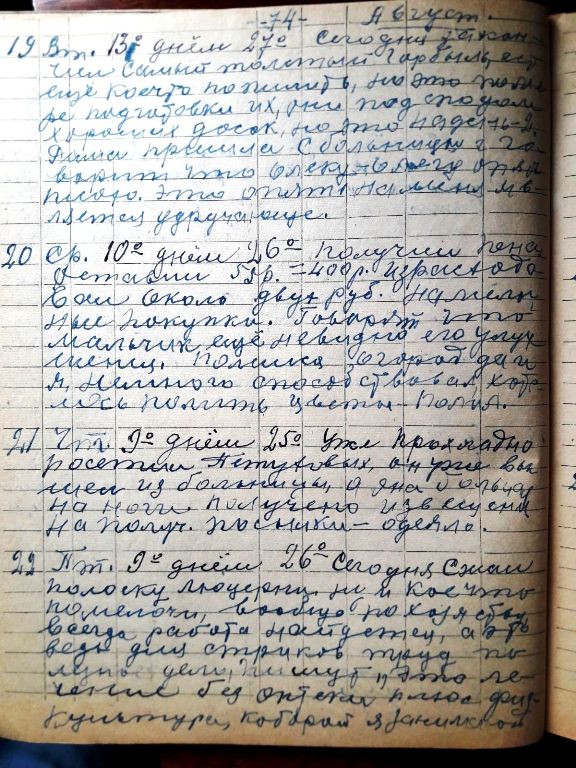 -74- Август.
19 Вт. 13° днём 27° Сегодня закон-
чил самый толстый горбыль, ест
ещё кое что попилить, но это после
подготовки их, они под сподом
хороших досок, но это на день-2.
пришла с больницы и го-
ворит что опять
писю. Это опять на меня яв-
ляется удручающе.
20 Ср. 10° днём 26° получил пенс,
оставил 55р. = 400р. израсходо
вал около двух руб. на мелоч
ные покупки. Говорят что
мальчик ещё невидно его улуч
шения. Полина огород да и
я, немного способствовал, хоте
лось полить цветы - полил.
21 Чт. 9° днём 25° уже прохладно
посетил Петуховых, он уже вы
шел из больницы, а она больна
на ноги получено извещения
на получ. посылки - одеяло.
22 Пт. 9° днём 26° Сегодня сжал
полоску люцерны, ну и кое что
по мелочи, вообще по хозяйству
всегда работа найдется, а это
ведь для стриков труд по
лупное дело, пишут, "это ле-
чение без аптеки плюс физ-
культура, которой я занимаюсь